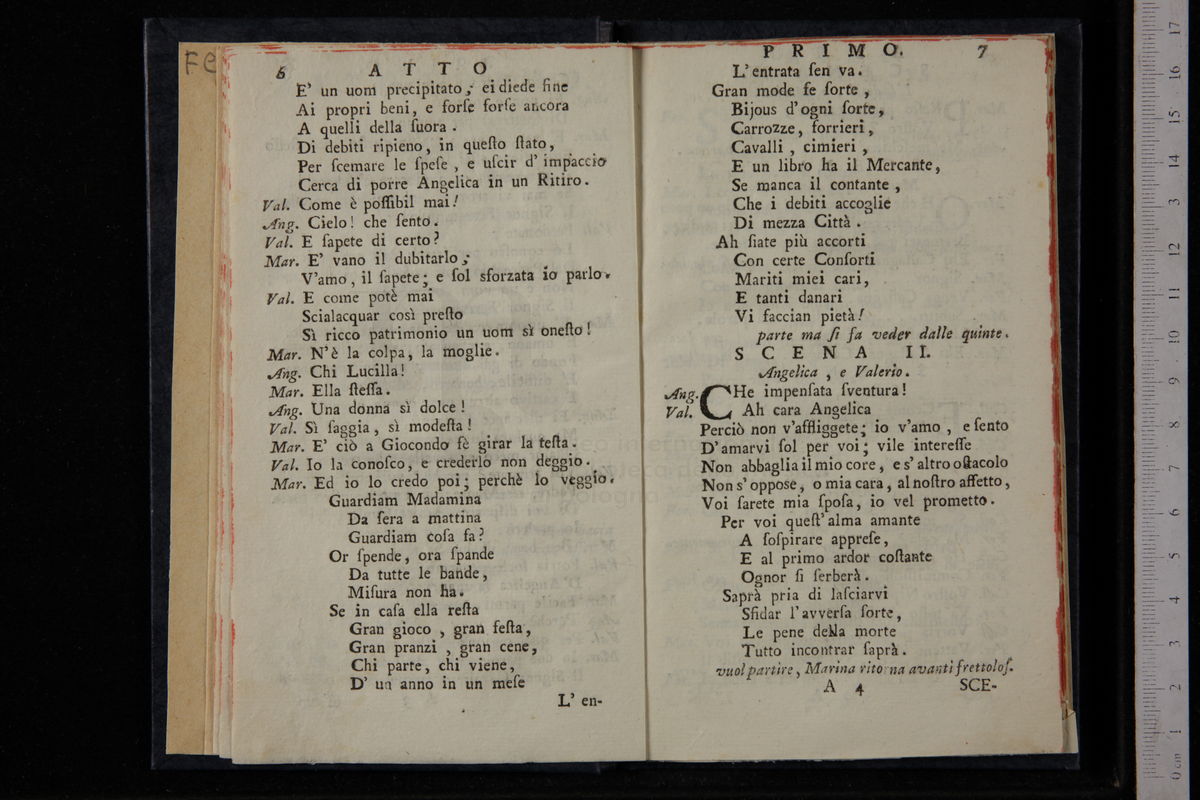 Fe
6 ATTO
E' un uom precipitato; ei diede fine
Ai propri beni, e forſe forſe ancora
A quelli della ſuora.
Di debiti ripieno, in queſto ſtato,
Per ſcemare le ſpeſe, e uſcir d' impaccio
Cerca di porre Angelica in un Ritiro.
Val. Come è poſſibil mai!
Ang. Cielo! che ſento.
Val. E ſapete di certo?
Mar. E' vano il dubitarlo;
V'amo, il ſapete; e ſol sforzata io parlo.
Val. E come potè mai
Scialacquar così preſto
Sì ricco patrimonio un uom sì oneſto!
Mar. N'è la colpa, la moglie.
Ang. Chi Lucilla!
Mar. Ella ſteſſa.
Ang. Una donna sì dolce!
Val. Sì ſaggia, sì modeſta!
Mar. E' ciò a Giocondo fè girar la teſta.
Val. Io la conoſco, e crederlo non deggio.
Mar. Ed io lo credo poi; perchè lo veggio.
Guardiam Madamina
Da ſera a mattina
Guardiam coſa fa?
Or ſpende, ora ſpande
Da tutte le bande,
Miſura non ha.
Se in caſa ella reſta
Gran gioco, gran feſta,
Gran pranzi, gran cene,
Chi parte, chi viene,
D' un anno in un meſe
L' en-
PRIMO. 7
L'entrata ſen va.
Gran mode fe ſorte,
Bijous d'ogni ſorte,
Carrozze, forrieri,
Cavalli, cimieri,
E un libro ha il Mercante,
Se manca il contante,
Che i debiti accoglie
Di mezza Città.
Ah ſiate più accorti
Con certe Conſorti
Mariti miei cari,
E tanti danari
Vi faccian pietà!
parte ma ſi fa veder dalle quinte.
SCENA II.
Angelica, e Valerio.
Ang. CHe impenſata ſventura!
Val. Ah cara Angelica
Perciò non v'affliggete; io v'amo, e ſento
D'amarvi ſol per voi; vile intereſſe
Non abbaglia il mio core, e s'altro oſtacolo
Non s'oppose, o mia cara, al noſtro affetto,
Voi ſarete mia ſpoſa, io vel prometto.
Per voi queſt'alma amante
A ſoſpirare appreſe,
E al primo ardor coſtante
Ognor ſi ſerberà.
Saprà pria di laſciarvi
Sfidar l'avverſa ſorte,
Le pene della morte
Tutto incontrar ſaprà.
vuol partire, Marina ritorna avanti frettoloſ.
A 4 SCE-